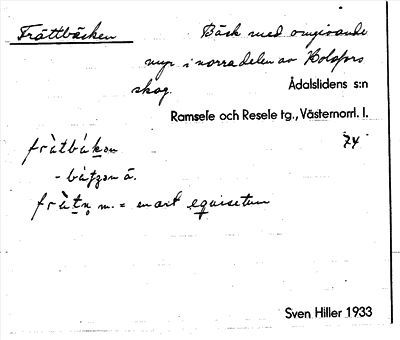 Frättbäcken
Bäck med omgivande
myr i norra delen av Holafors
skog.
Ådalslidens s:n
Ramsele och Resele tg., Västernorrl. l.
74
fràtbákən
- bátʃən ä.
fràtn̥ m. = en art equisetum
Sven Hiller 1933